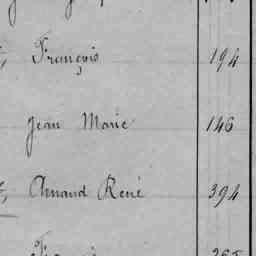 François 194
Jean Marie 146
Amand René 394